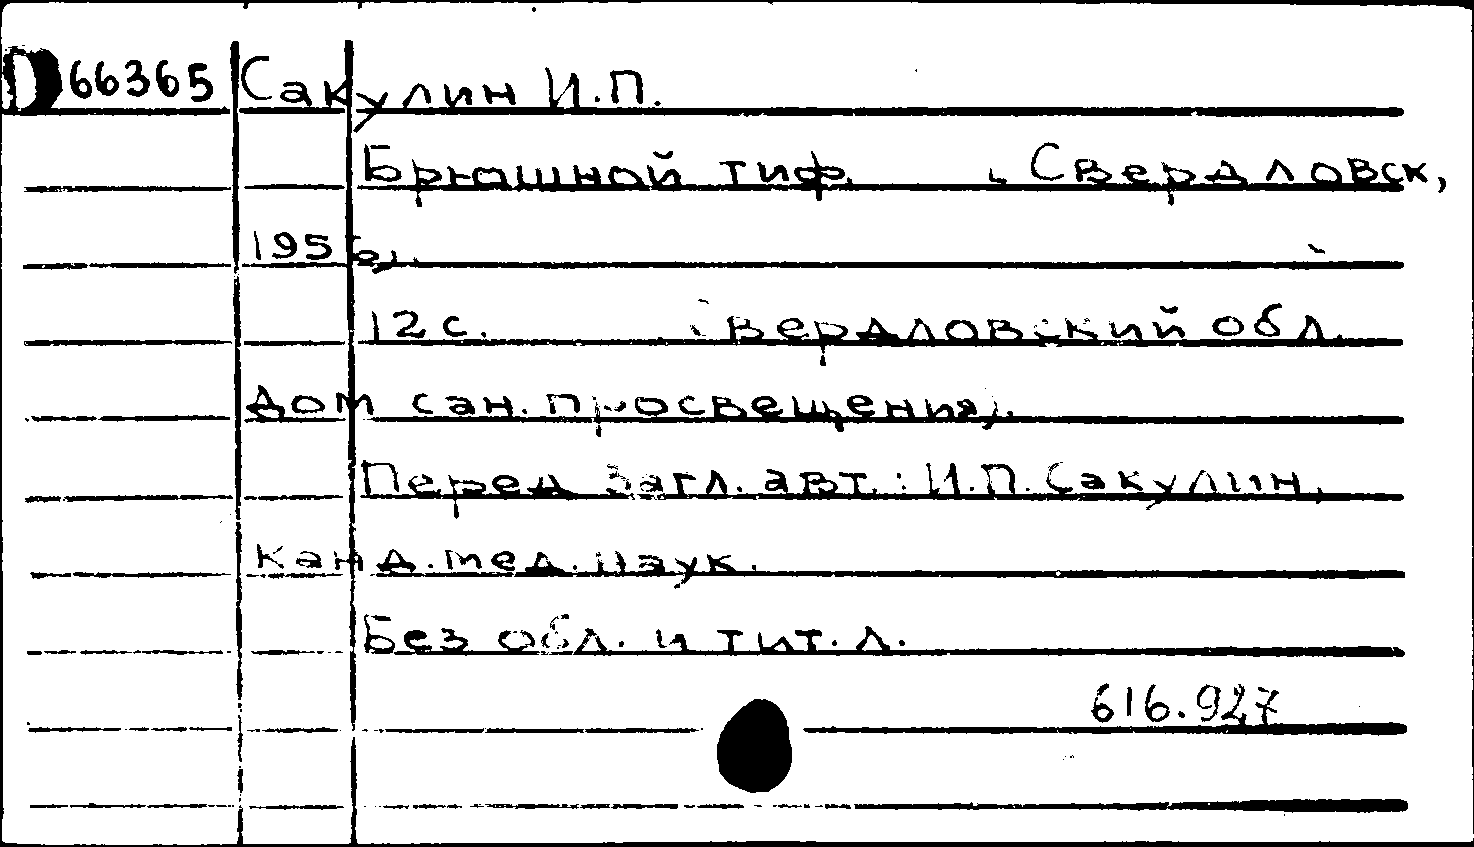 66365 Сакулин И.П.
Брюшной тиф. Свердловск,
12 с. Свердловский обл.
дом сан. просвещения).
Перед загл. авт.: И.П. Сакулин,
канд. мед. наук.
Без обл. и тит. л.
616.927